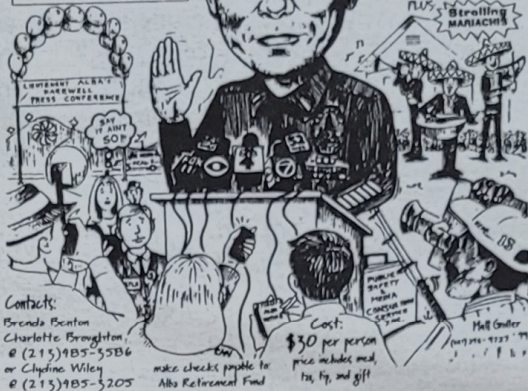 PLUS
Strolling
MARIACHIS
LIEUTENANT ALBA'S
FAREWELL
PRESS CONFERENCE
SAY
IT AIN'T
SO!!
FOX
7
PUBLIC
SAFETY
MEDIA
CONSULTING
SERVICE
INC.
Contacts:
Brenda Benton
Charlotte Broughton,
@ (213) 485-3586
or Clydine Wiley
@ (213) 485-3205
make checks payable to:
Alba Retirement Fund
Cost:
$30 per person
price includes meal,
tax, tip, and gift